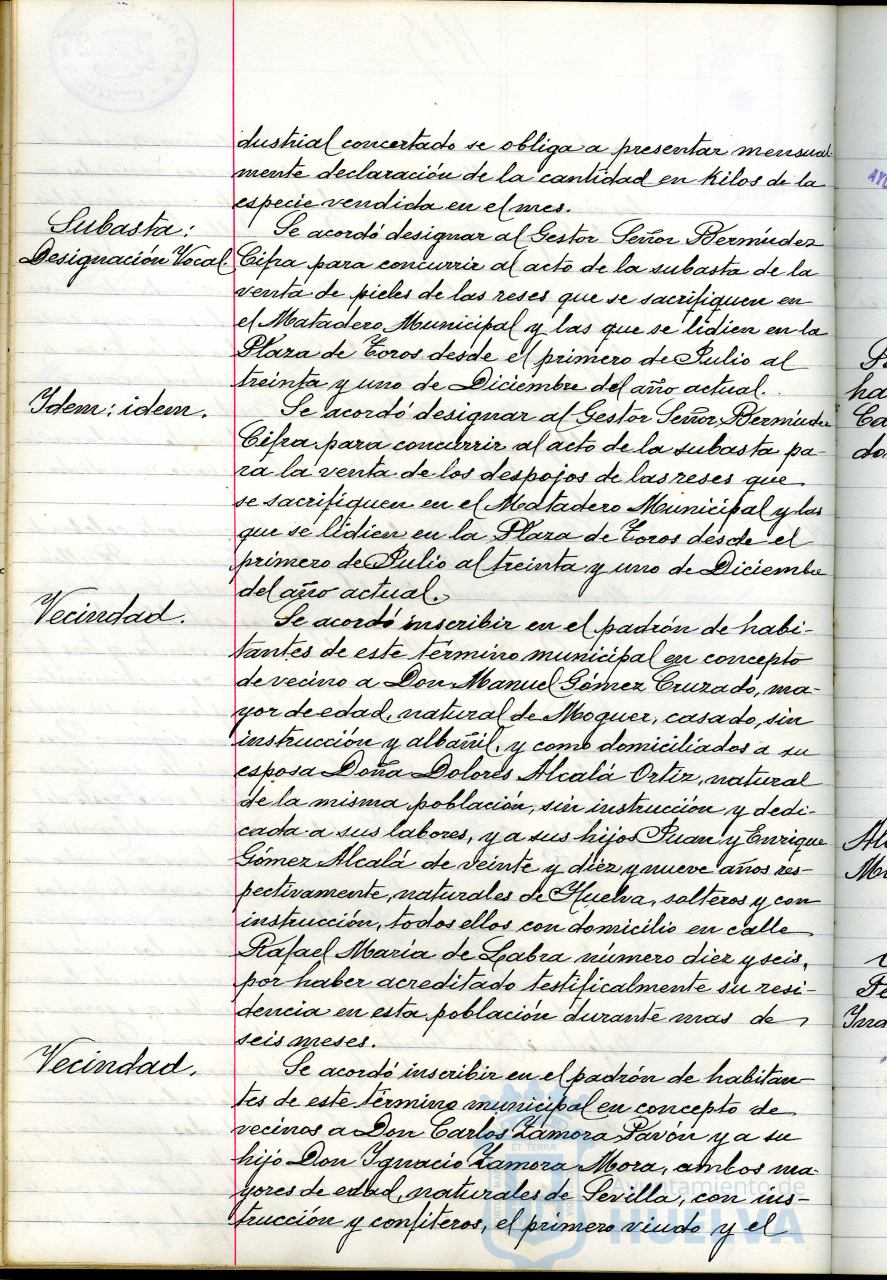 dustrial concertado se obliga a presentar mensual-
mente declaración de la cantidad en Kilos de la
especie vendida en el mes.
Subasta:
Designación Vocal
Se acordó designar al Gestor Señor Bermúdez
Cifra para concurrir al acto de la subasta de la
venta de pieles de las reses que se sacrifiquen en
el Matadero Municipal y las que se lidien en la
Plaza de Toros desde el primero de Julio al
treinta y uno de Diciembre del año actual.
Idem: idem.
Se acordó designar al Gestor Señor Bermúdez
Cifra para concurrir al acto de la subasta pa-
ra la venta de los despojos de las reses que
se sacrifiquen en el Matadero Municipal y las
que se lidien en la Plaza de Toros desde el
primero de Julio al treinta y uno de Diciembre
del año actual.
Vecindad.
Se acordó inscribir en el padrón de habi-
tantes de este término municipal en concepto
de vecino a Don Manuel Gómez Cruzado, ma-
yor de edad, natural de Moguer, casado, sin
instrucción y albañil, y como domiciliados a su
esposa Doña Dolores Alcalá Ortiz, natural
de la misma población, sin instrucción y dedi-
cada a sus labores, y a sus hijos Juan y Enrique
Gómez Alcalá de veinte y diez y nueve años res-
pectivamente, naturales de Huelva, solteros y con
instrucción, todos ellos con domicilio en calle
Rafael María de Labra número diez y seis,
por haber acreditado testificalmente su resi-
dencia en esta población durante mas de
seis meses.
Vecindad.
Se acordó inscribir en el padrón de habitan-
tes de este término municipal en concepto de
vecinos a Don Carlos Zamora Pavón y a su
hijo Don Ignacio Zamora Mora, ambos ma-
yores de edad, naturales de Sevilla, con ins-
trucción y confiteros, el primero viudo y el
Ayuntamiento de
HUELVA